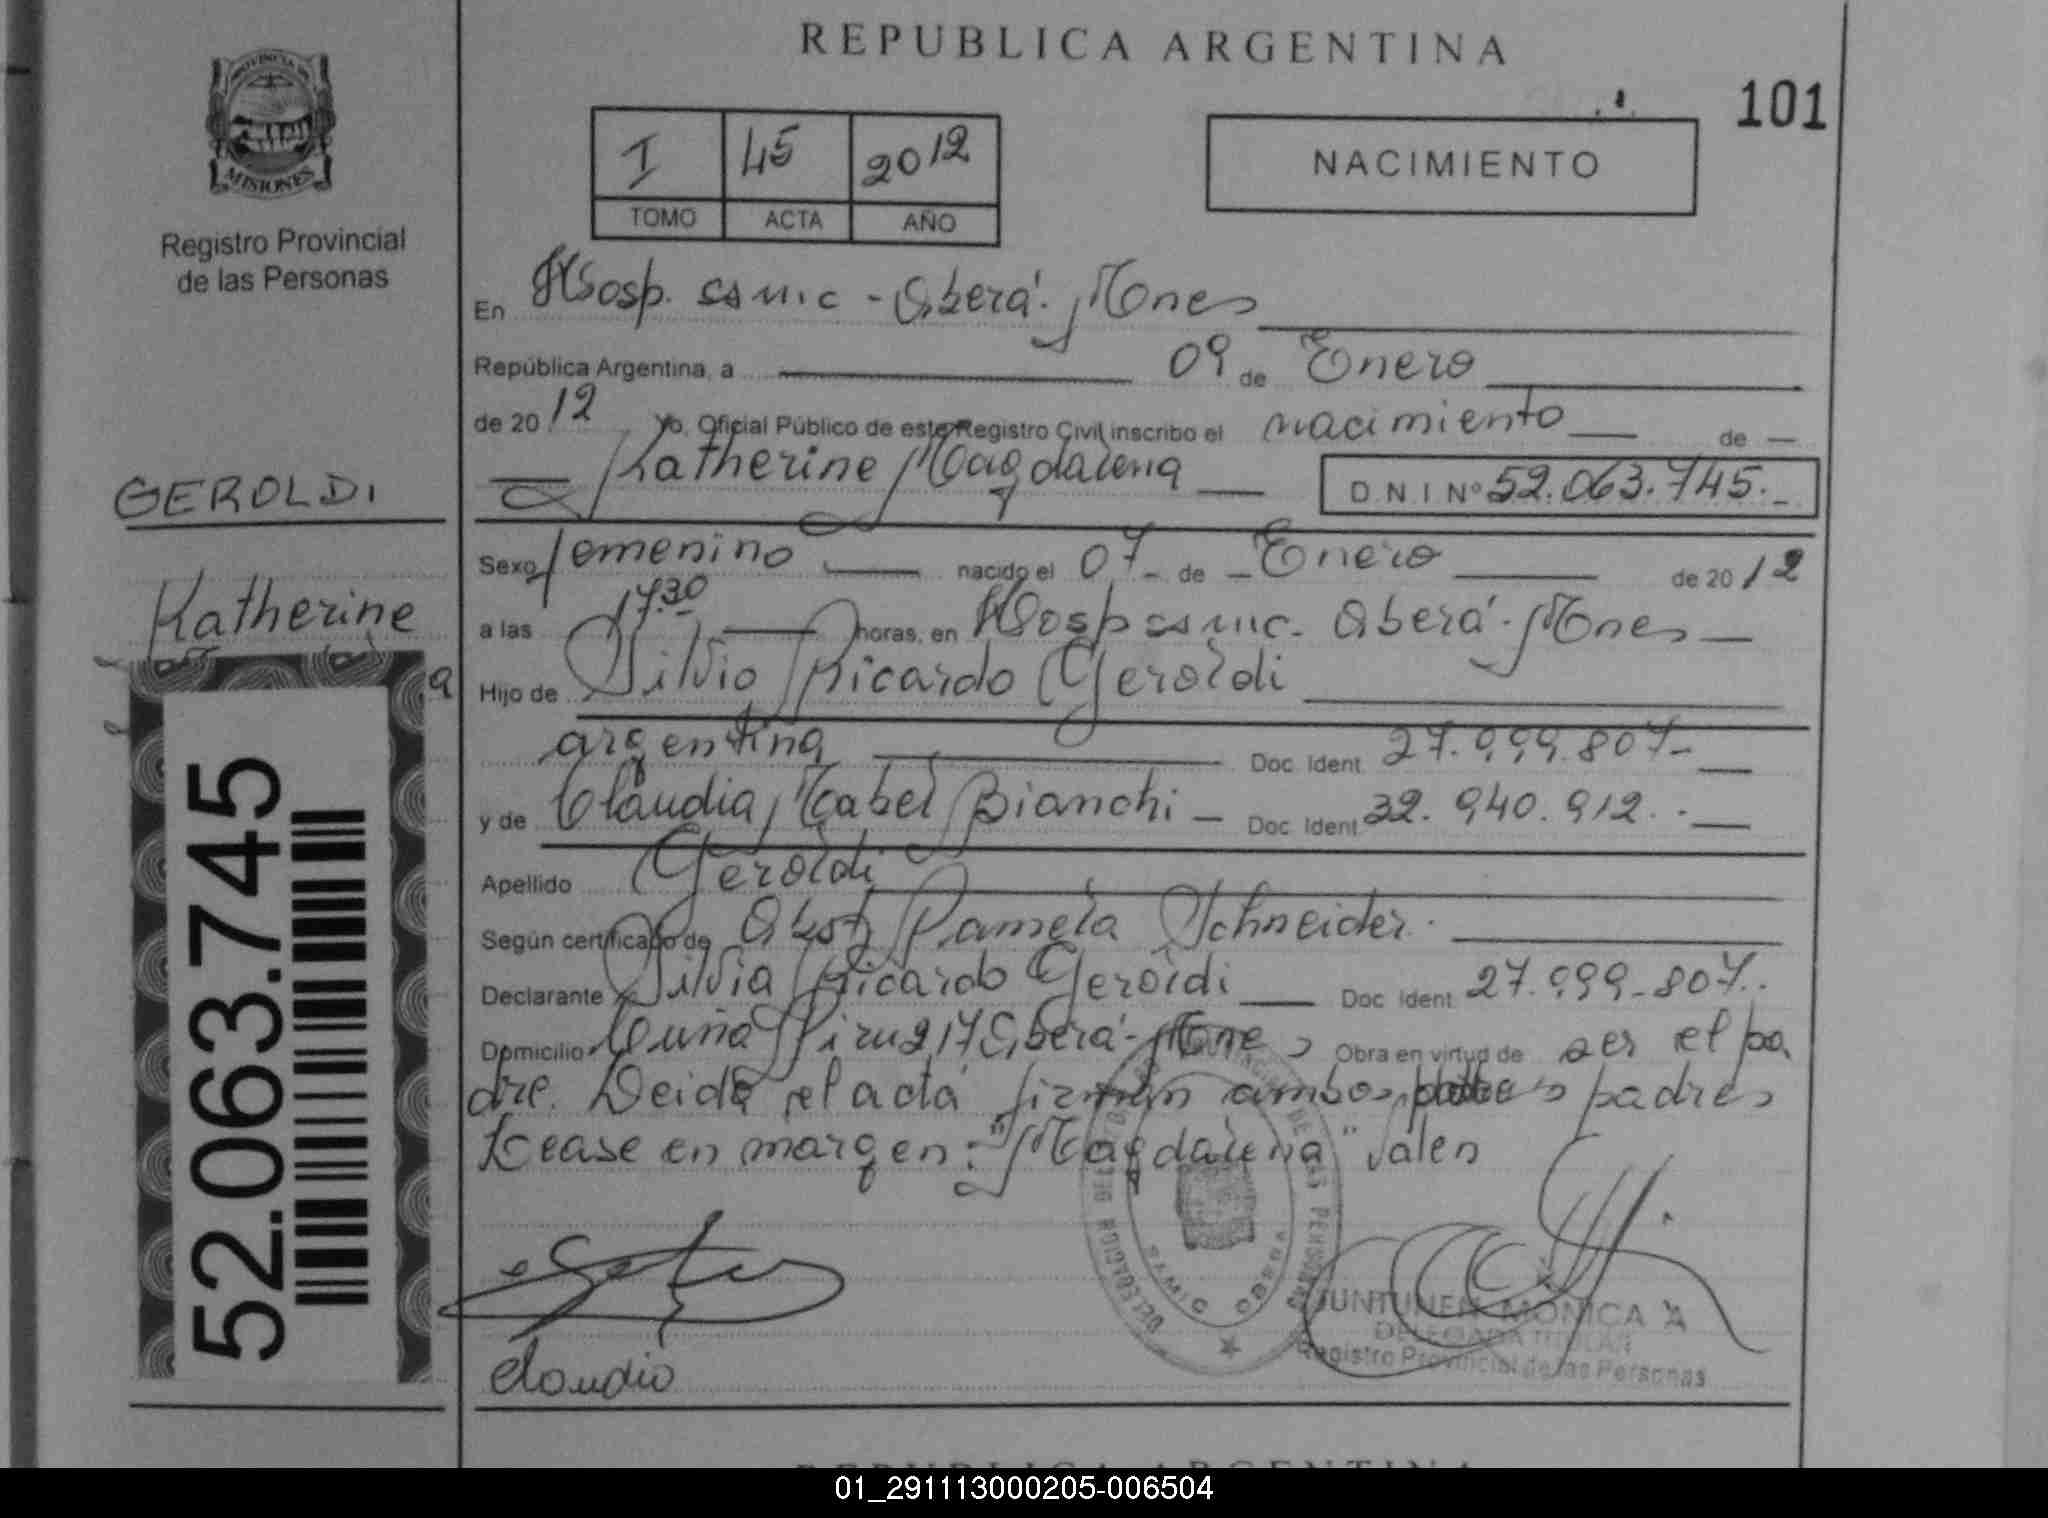 REPUBLICA ARGENTINA
101
PROVINCIA DE
MISIONES
Registro Provincial
de las Personas
I 45 2012
TOMO ACTA AÑO
NACIMIENTO
En Hosp. samic - Oberá. Mones
República Argentina, a 09 de Enero
de 2012 Yo, Oficial Público de este Registro Civil inscribo el nacimiento de
Katherine Magdalena D N I Nº 52.063.745.-
GEROLDI
Katherine
a
52.063.745
Sexo femenino nacido el 07 - de - Enero de 2012
a las 17.30 horas, en Hosp samic. Oberá. Mones
Hijo de Silvio Ricardo Geroldi
argentina Doc. Ident. 27.999.807-
y de Claudia Mabel Bianchi - Doc. Ident. 32.940.912.-
Apellido Geroldi
Según certificado de Obst Pamela Schneider.
Declarante Silvia Ricardo Geroldi Doc. Ident. 27.999-807.
Domicilio Cuña Piru 217 Oberá - Mones Obra en virtud de ser el pa
dre. Leida el acta firman ambos padres
Lease en margen: "Magdalena" Valen
DELEGACION DEL REGISTRO PROVINCIAL DE LAS PERSONAS
SAMIC OBERA
JUNTUNEN MONICA A
DELEGADA TITULAR
Registro Provincial de las Personas
Claudia
REPUBLICA ARGENTINA
01_291113000205-006504